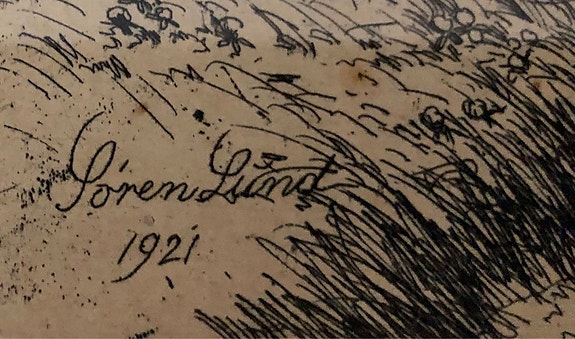 Søren Lund
1921